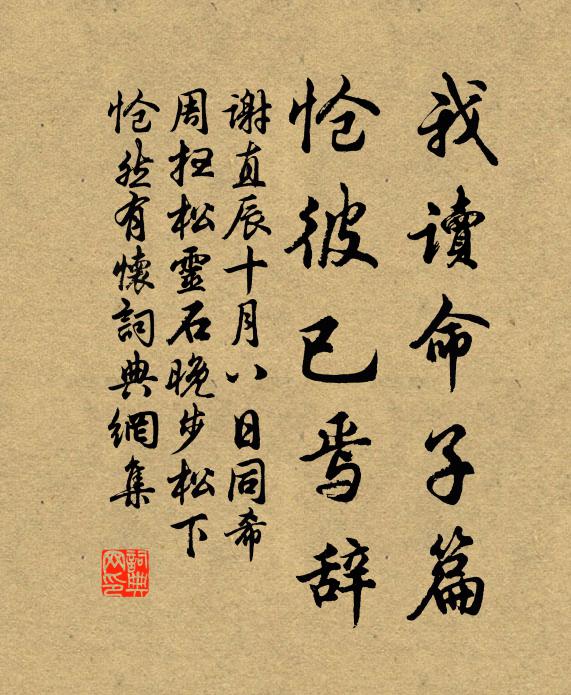 我读命子篇
怆彼已焉辞
谢直辰十月八日同希
周扫松灵石晚步松下
怆然有怀词典网集
词典网印